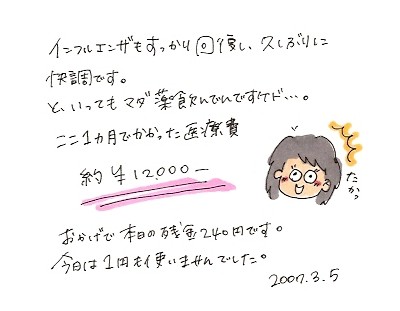 インフルエンザもすっかり回復し、久しぶりに
快調です。
と、いってもマダ薬飲んでんですケド…。
ここ1カ月でかかった医療費
約¥12,000ー
たかっ
おかげで本日の残金240円です。
今日は1円も使いませんでした。
2007.3.5